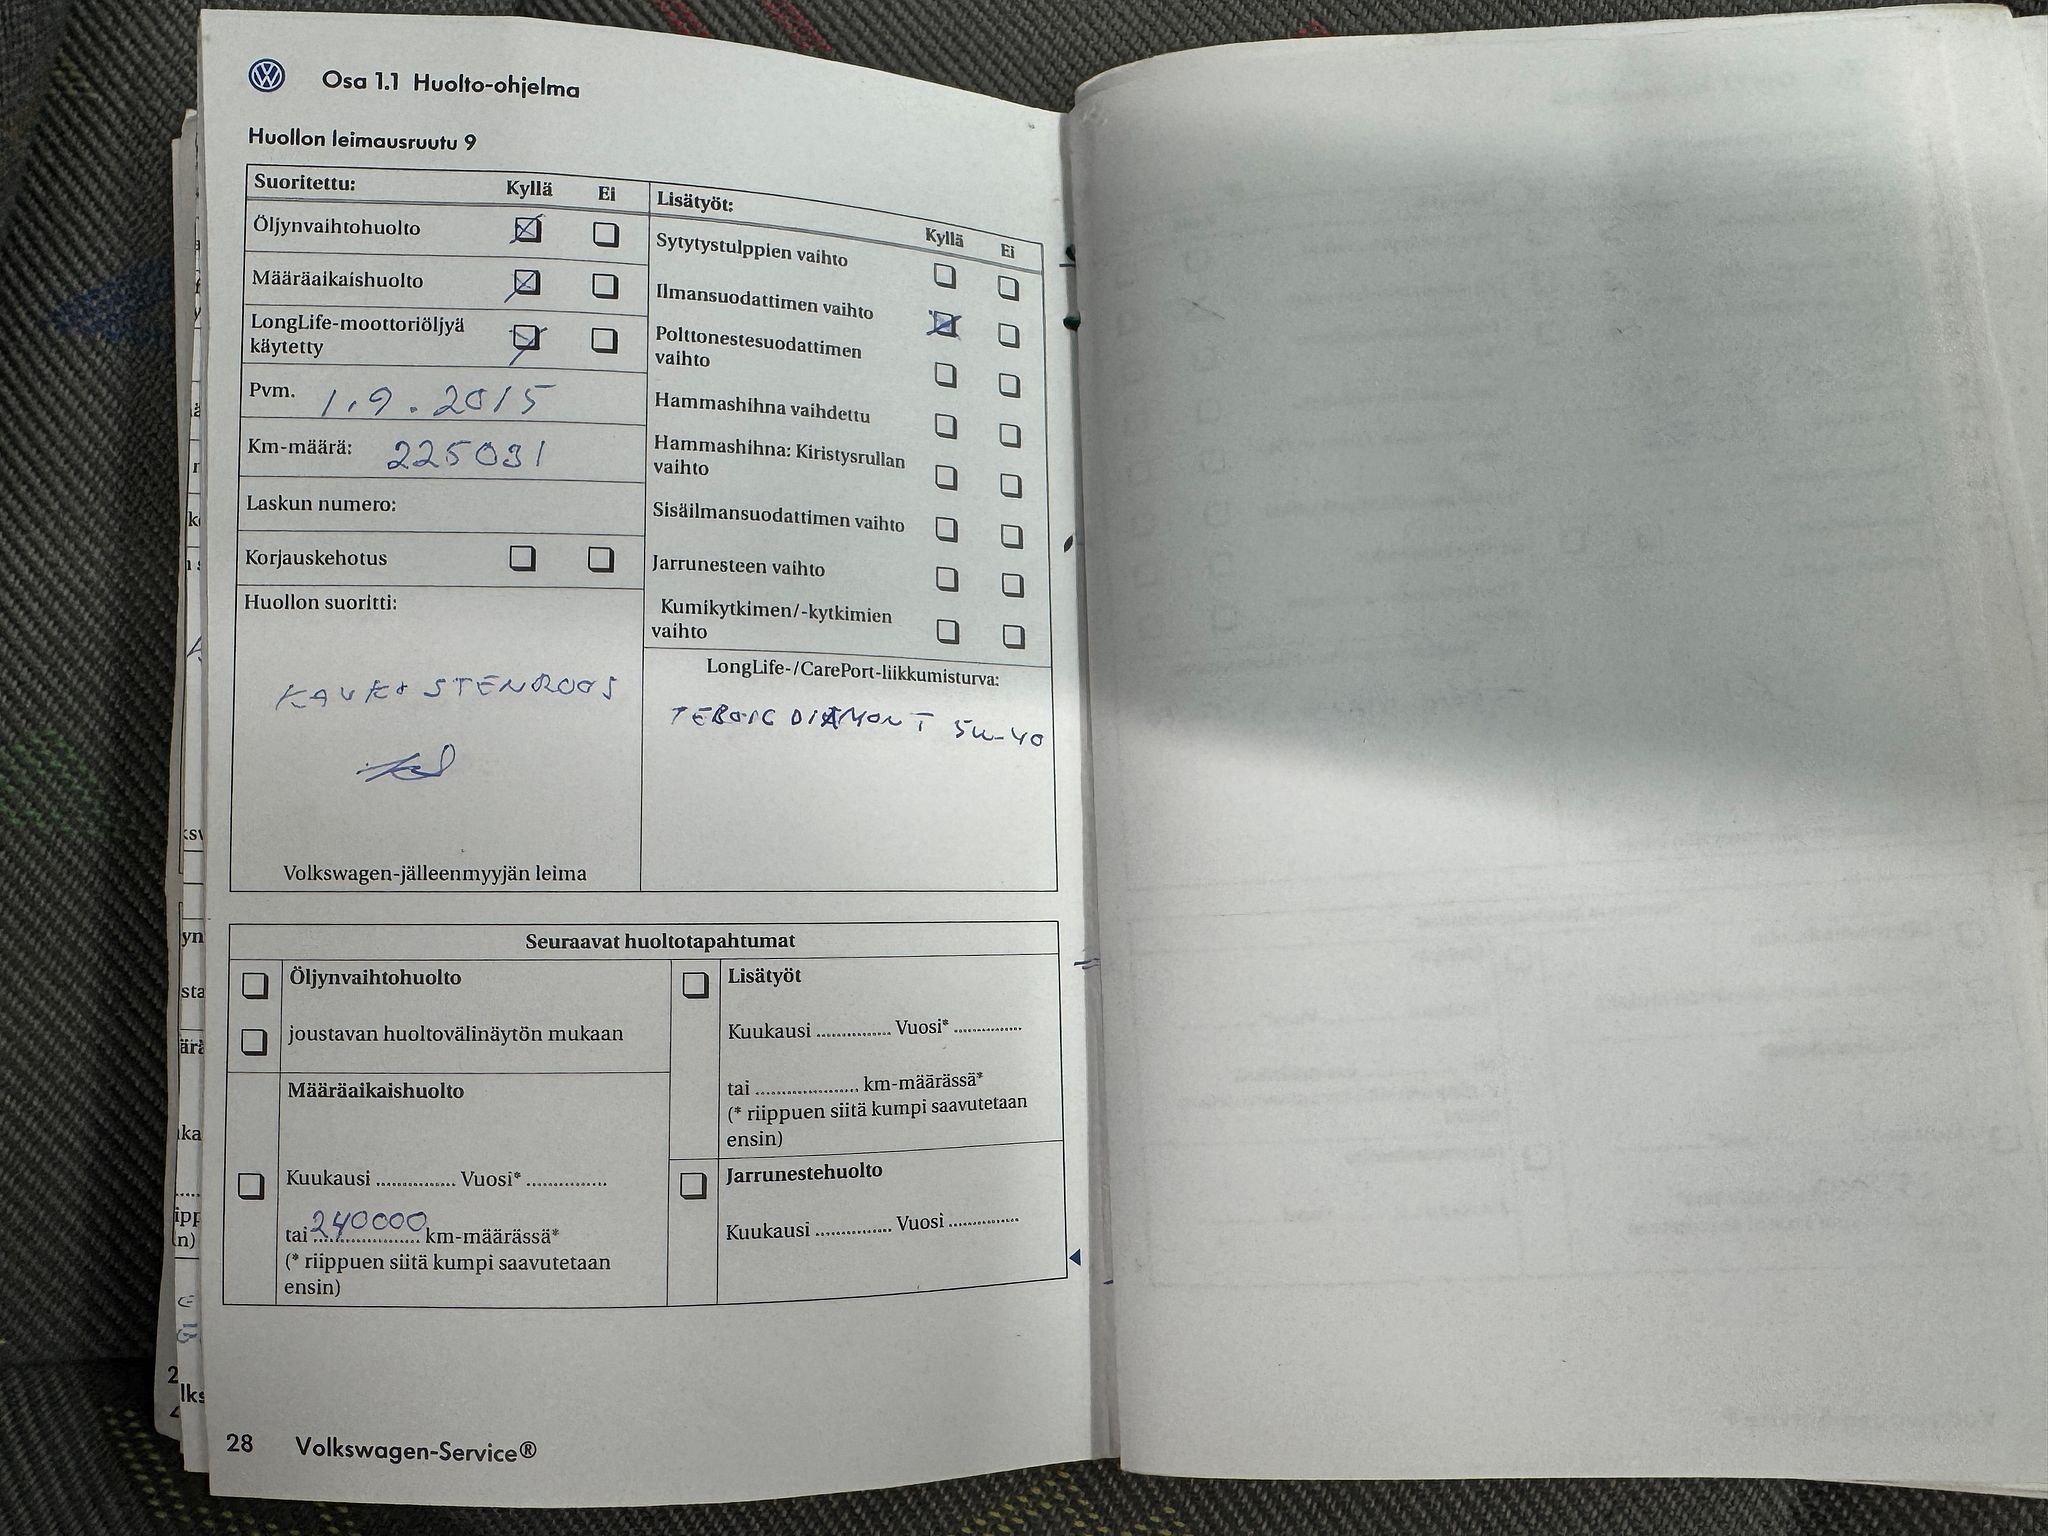 Osa 1.1 Huolto-ohjelma
Huollon leimausruutu 9
Suoritettu: Kyllä Ei
Öljynvaihtohuolto
Määräaikaishuolto
LongLife-moottoriöljyä
käytetty
Pvm. 1.9.2015
Km-määrä: 225031
Laskun numero:
Korjauskehotus
Huollon suoritti:
STENROOS
Volkswagen-jälleenmyyjän leima
Lisätyöt:
Kyllä Ei
Sytytystulppien vaihto
Ilmansuodattimen vaihto
Polttonestesuodattimen
vaihto
Hammashihna vaihdettu
Hammashihna: Kiristysrullan
vaihto
Sisäilmansuodattimen vaihto
Jarrunesteen vaihto
Kumikytkimen/-kytkimien
vaihto
LongLife-/CarePort-liikkumisturva:
DIAMONT 5W-40
Seuraavat huoltotapahtumat
Öljynvaihtohuolto
joustavan huoltovälinäytön mukaan
Määräaikaishuolto
Kuukausi ............... Vuosi* ...............
tai 240000 km-määrässä*
(* riippuen siitä kumpi saavutetaan
ensin)
Lisätyöt
Kuukausi ............... Vuosi* ...............
tai ................... km-määrässä*
(* riippuen siitä kumpi saavutetaan
ensin)
Jarrunestehuolto
Kuukausi ............... Vuosi ...............
28 Volkswagen-Service®